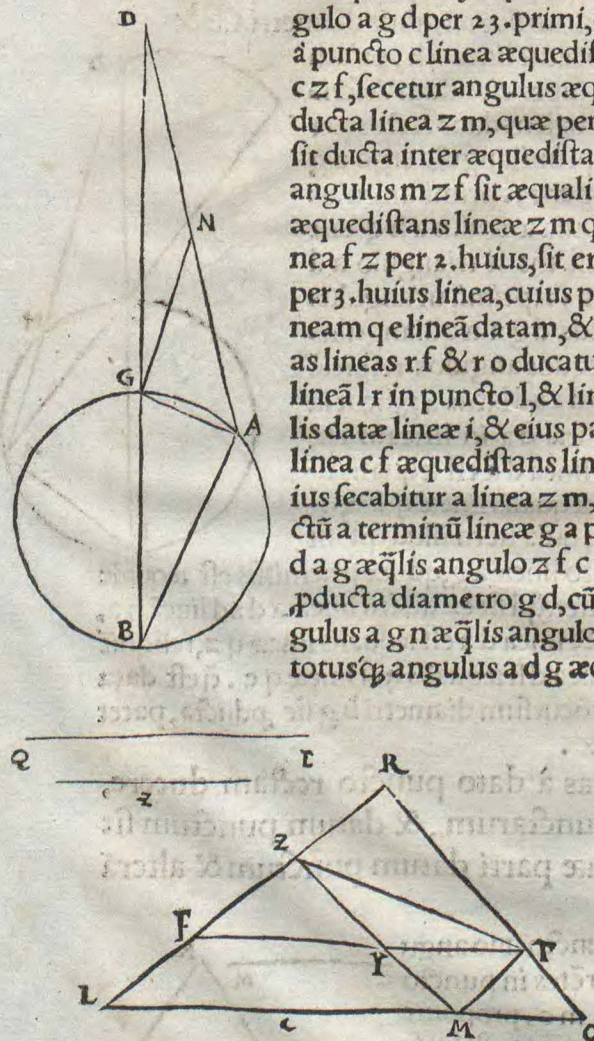 gulo a g d per 23. primi,
à puncto c linea æquediſ
c z f, ſecetur angulus æq
ducta linea z m, quæ per
ſit ducta inter æquediſta
angulus m z f ſit æquali
æquediſtans lineæ z m q
nea f z per 2. huius, ſit er
per 3. huius linea, cuius p
neam q e lineā datam, &
as lineas r.f & r o ducatu
lineā l r in puncto l, & lin
lis datæ lineæ i, & eius pa
linea c f æquediſtans lin
ius ſecabitur a linea z m,
ctū a terminū lineæ g a p
d a g æq̄lis angulo z f c
ꝓducta diametro g d, cū
gulus a g n æq̄lis angulo
totus'qꝫ angulus a d g æ
D
N
G
A
B
Q
z
R
Z
F
Y
L
c
M